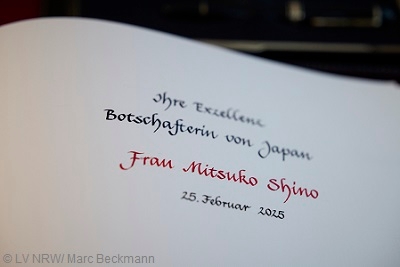 Ihre Exzellenz
Botschafterin von Japan
Frau Mitsuko Shino
25. Februar 2025
© LV NRW/ Marc Beckmann